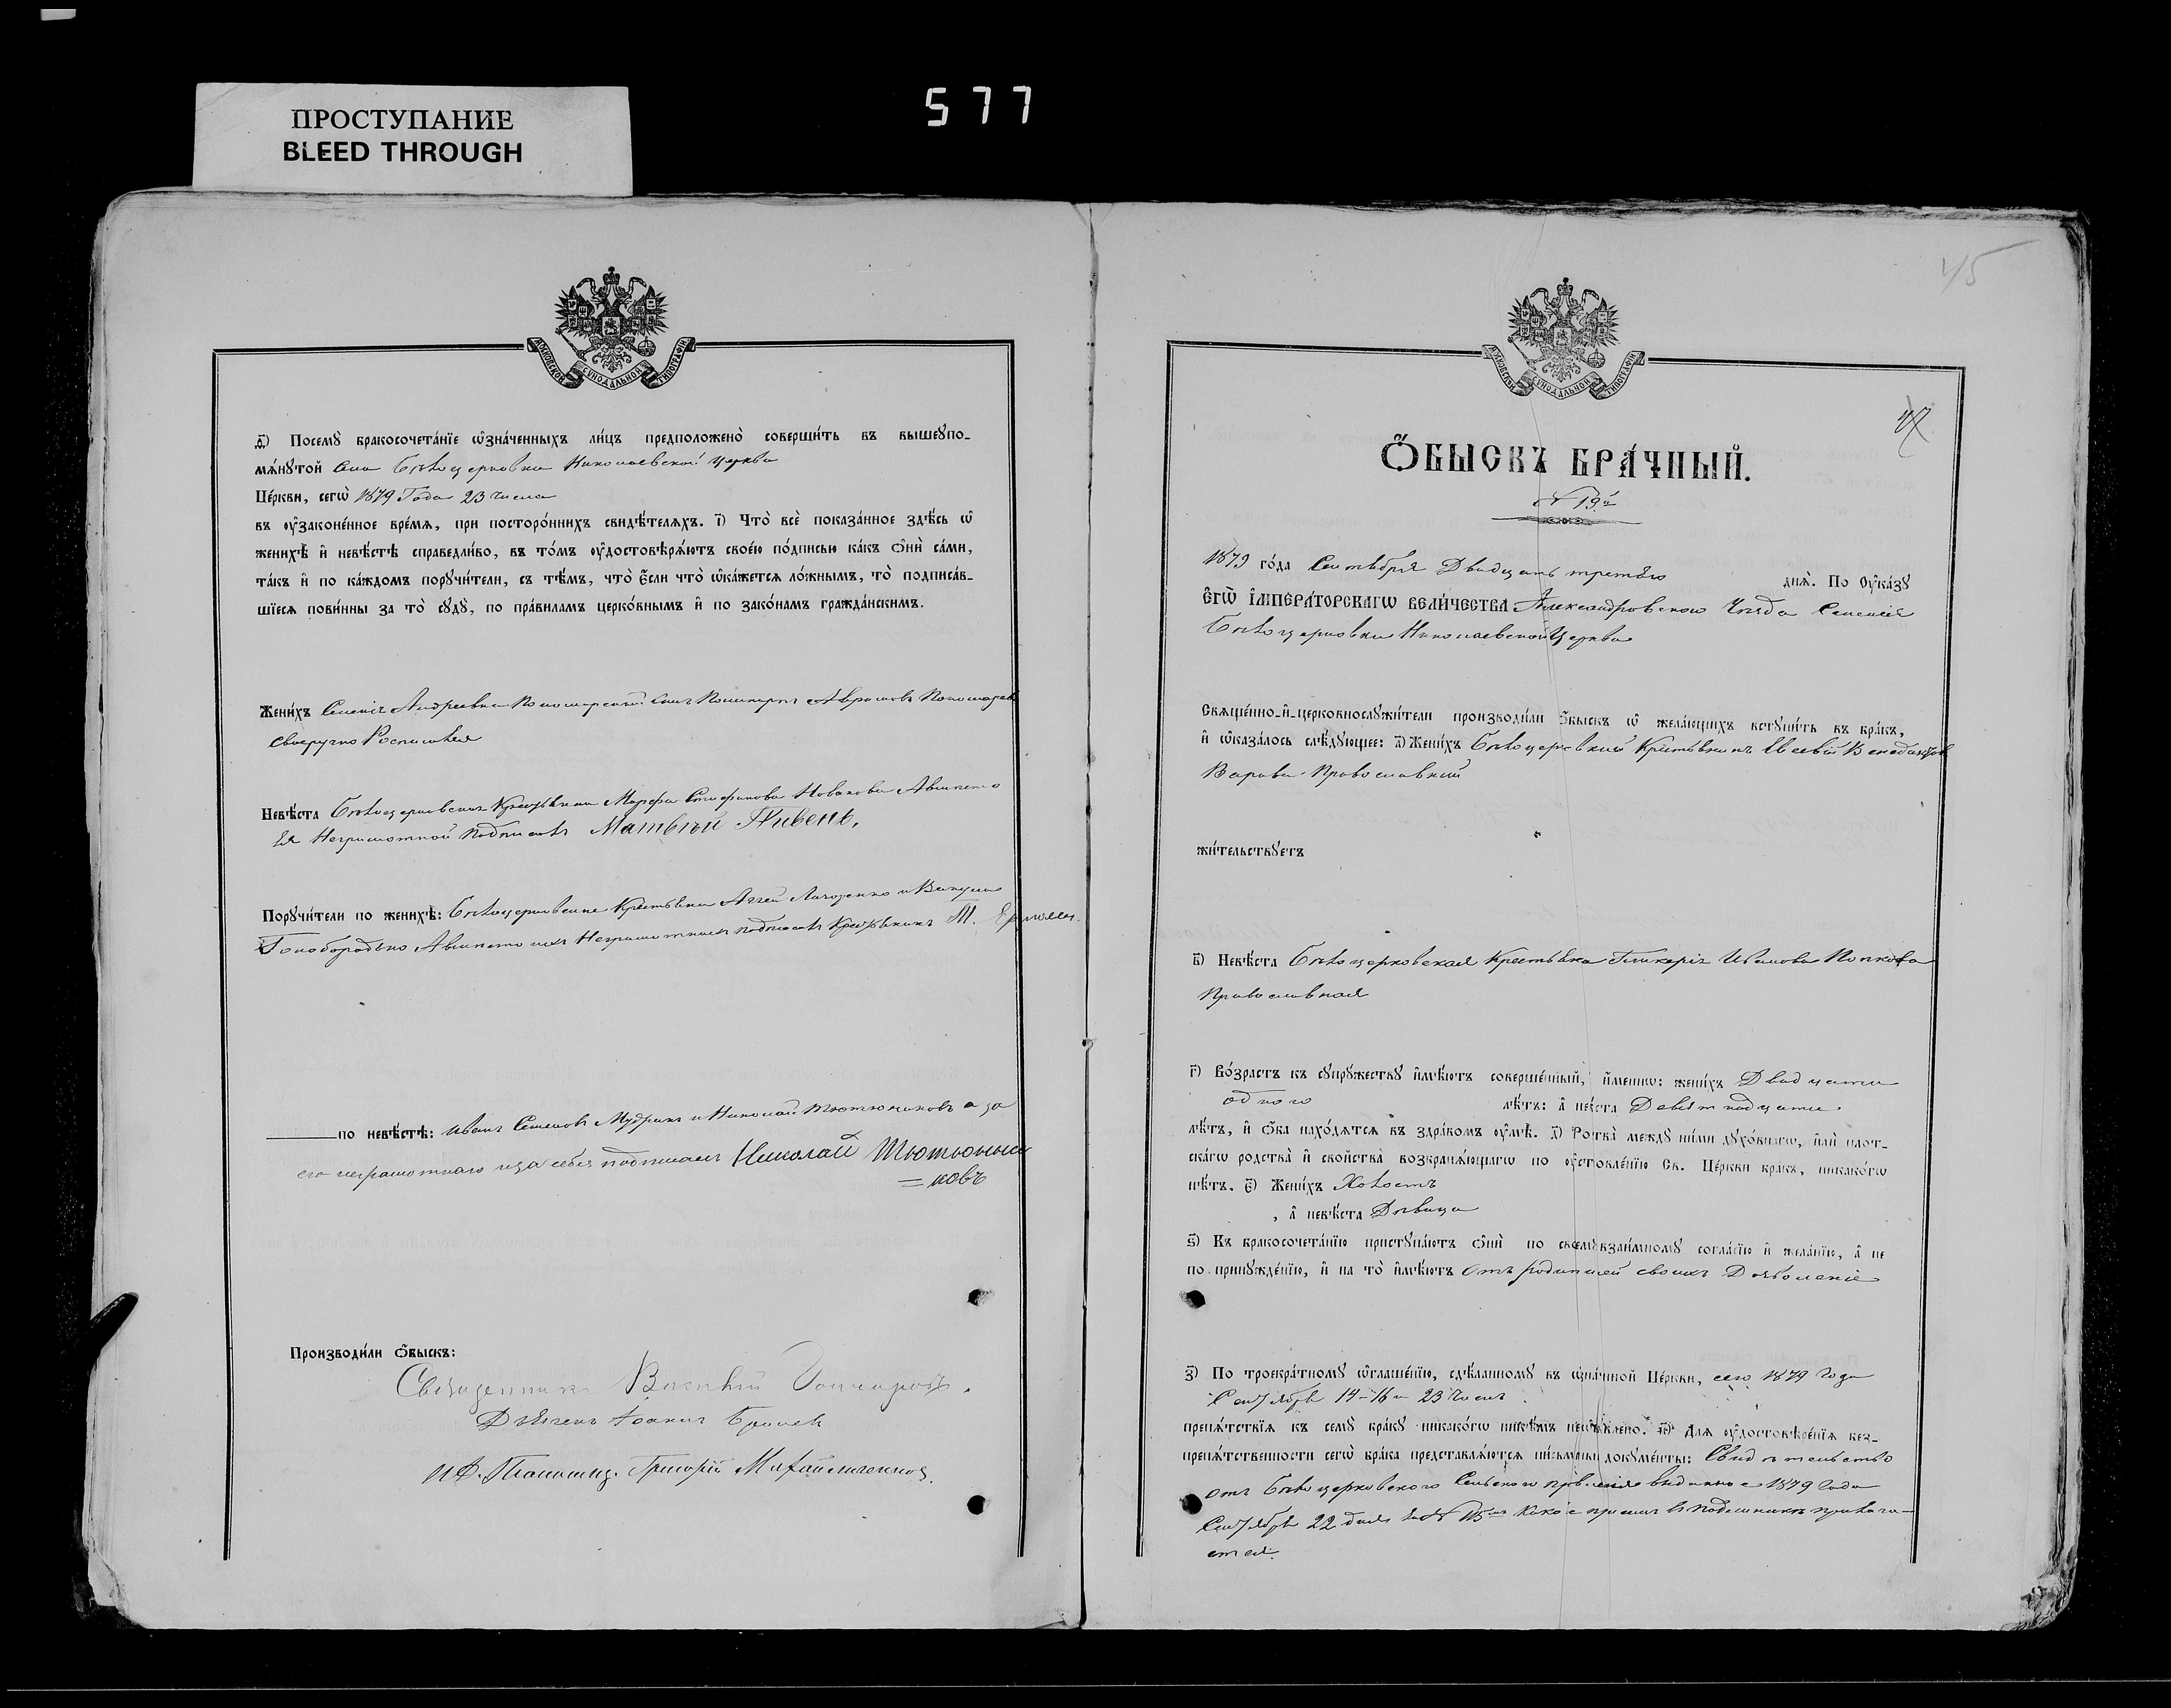 577
ПРОСТУПАНИЕ
BLEED THROUGH
МОСКОВСКОЙ СѴНОДАЛЬНОЙ ТИПОГРАФІИ
д҃і) Посемꙋ бракосочета́нїе ѡ҆зна́ченныхъ ли́цъ предположено̀ соверши́ть въ вышеꙋпо-
мѧ́нꙋтой села Бѣлоцерковки Николаевской церкви
Це́ркви, сегѡ̀ 1879 Года 23 числа
въ ᲂу҆законе́нное вре́мѧ, при посторо́ннихъ свидѣ́телѧхъ. і҃) Что̀ всѐ показа́нное здѣ́сь ѡ҆
женихѣ̀ и҆ невѣ́стѣ справедли́во, въ то́мъ ᲂу҆достовѣрѧ́ютъ свое́ю по́дписью ка́къ ѻ҆нѝ са́ми,
та́къ и҆ по ка́ждомъ порꙋчи́тели, съ тѣ́мъ, что̀ є҆́сли что̀ ѡ҆ка́жетсѧ ло́жнымъ, то̀ подписа́в-
шїесѧ пови́нны за то̀ сꙋдꙋ̀, по пра́виламъ церко́внымъ и҆ по зако́намъ гражда́нскимъ.
Жени́хъ
своеручно Росписался
Невѣ́ста Бѣлоцерковская Крестьянка Марфа Стефанова Новакова Авместо
Ея Неграмотной подписалъ Матвѣй Пивень,
Порꙋчи́тели по женихѣ̀: Бѣлоцерковские Крестьяни
Голобородько Авместо ихъ Неграмотныхъ подписалъ Крестьянинъ
по невѣ́стѣ: Иванъ Семеновъ Мудрикъ и Николай Тютюниковъ а за
его неграмотнаго и за себя подписалъ Николай Тютюнни
= ковъ
Производи́ли ѻ҆́быскъ:
Священникъ Василий Гончаровъ.
Дьяченъ Іоаннъ
И.Д. Пономар. Григорій Михайличенко.
45
МОСКОВСКОЙ СѴНОДАЛЬНОЙ ТИПОГРАФІИ
Ѻ҆́БЫСКЪ БРА́ЧНЫЙ.
№ 19й
1879 го́да Сентября Двадцать третьяго днѧ̀. По Оу҆ка́зꙋ
Є҆гѡ̀ И҆мпера́торскагѡ вели́чества Александровского Уезда Селения
Бѣлоцерковки Николаевской Церкви
Свѧще́нно-и҆-церковнослꙋжи́тели производи́ли ѻ҆́быскъ ѡ҆ жела́ющихъ встꙋпи́ть въ бра́къ,
и҆ ѡ҆каза́лось слѣ́дꙋющее: а҃) Жени́хъ Бѣлоцерковский Крестьянинъ Евсевій
Варава Православний
жи́тельствꙋетъ
в҃) Невѣ́ста Бѣлоцерковская Крестьянка Гликерія Иванова Попкова
Православная
г҃) Во́зрастъ къ сꙋпрꙋ́жествꙋ и҆мѣ́ютъ соверше́нный, и҆́меннѡ: жени́хъ Двадцати
одного лѣ́тъ: а҆ невѣ́ста Девятнадцати.
лѣ́тъ, и҆ ѻ҆́ба нахо́дѧтсѧ въ здра́вомъ ᲂу҆мѣ̀. д҃) Родства̀ междꙋ ни́ми дꙋхо́внагѡ, и҆лѝ плот-
ска́гѡ родства̀ и҆ сво́йства возбранѧ́ющагѡ по ᲂу҆становле́нїю Св. Це́ркви бра́къ, никако́гѡ
нѣ́тъ. є҃) Жени́хъ Холостъ
, а҆ невѣ́ста Дѣвица
ѕ҃) Къ бракосочета́нїю пристꙋпа́ютъ ѻ҆нѝ по своемꙋ̀ взаи́мномꙋ согла́сїю и҆ жела́нїю, а҆ не
по принꙋжде́нїю, и҆ на то̀ и҆мѣ́ютъ отъ родителей своихъ Дозволеніе
з҃) По троекра́тномꙋ ѡ҆глаше́нїю, сдѣ́ланномꙋ въ ѡ҆зна́ченной Це́ркви, сего 1879 года
Сентября 14-16 и 23 числъ.
препѧ́тствїѧ къ семꙋ̀ бра́кꙋ никако́гѡ никѣ́мъ не ѡ҆б̾ѧ́влено. и҃) Длѧ ᲂу҆достовѣре́нїѧ без-
препѧ́тственности сегѡ̀ бра́ка представлѧ́ютсѧ пи́сьменныѧ докꙋме́нты: Свидѣтельство
отъ Бѣлоцерковского Сельского правления выданное 1879 года
Сентября 22 дня за № какое при семъ въ подлиннике прилага-
ется.